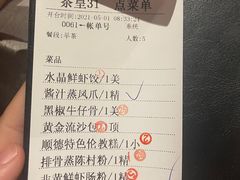 茶皇31 点菜单
开台时间:2021-05-01 08:33:24
0061←帐单号
餐段:早茶 人数:5
菜品
水晶鲜虾饺/1美
酱汁蒸凤爪/1精
黑椒牛仔骨/1美
黄金流沙包/1顶
顺德特色伦教糕/1小
排骨蒸陈村粉/1精
韭黄鲜虾肠粉/1精